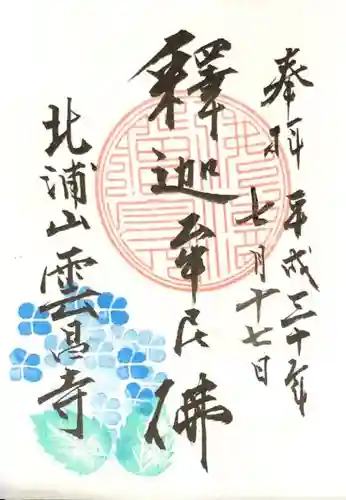 奉拝 平成三十年
七月十七日
釋迦牟尼佛
北浦山雲昌寺